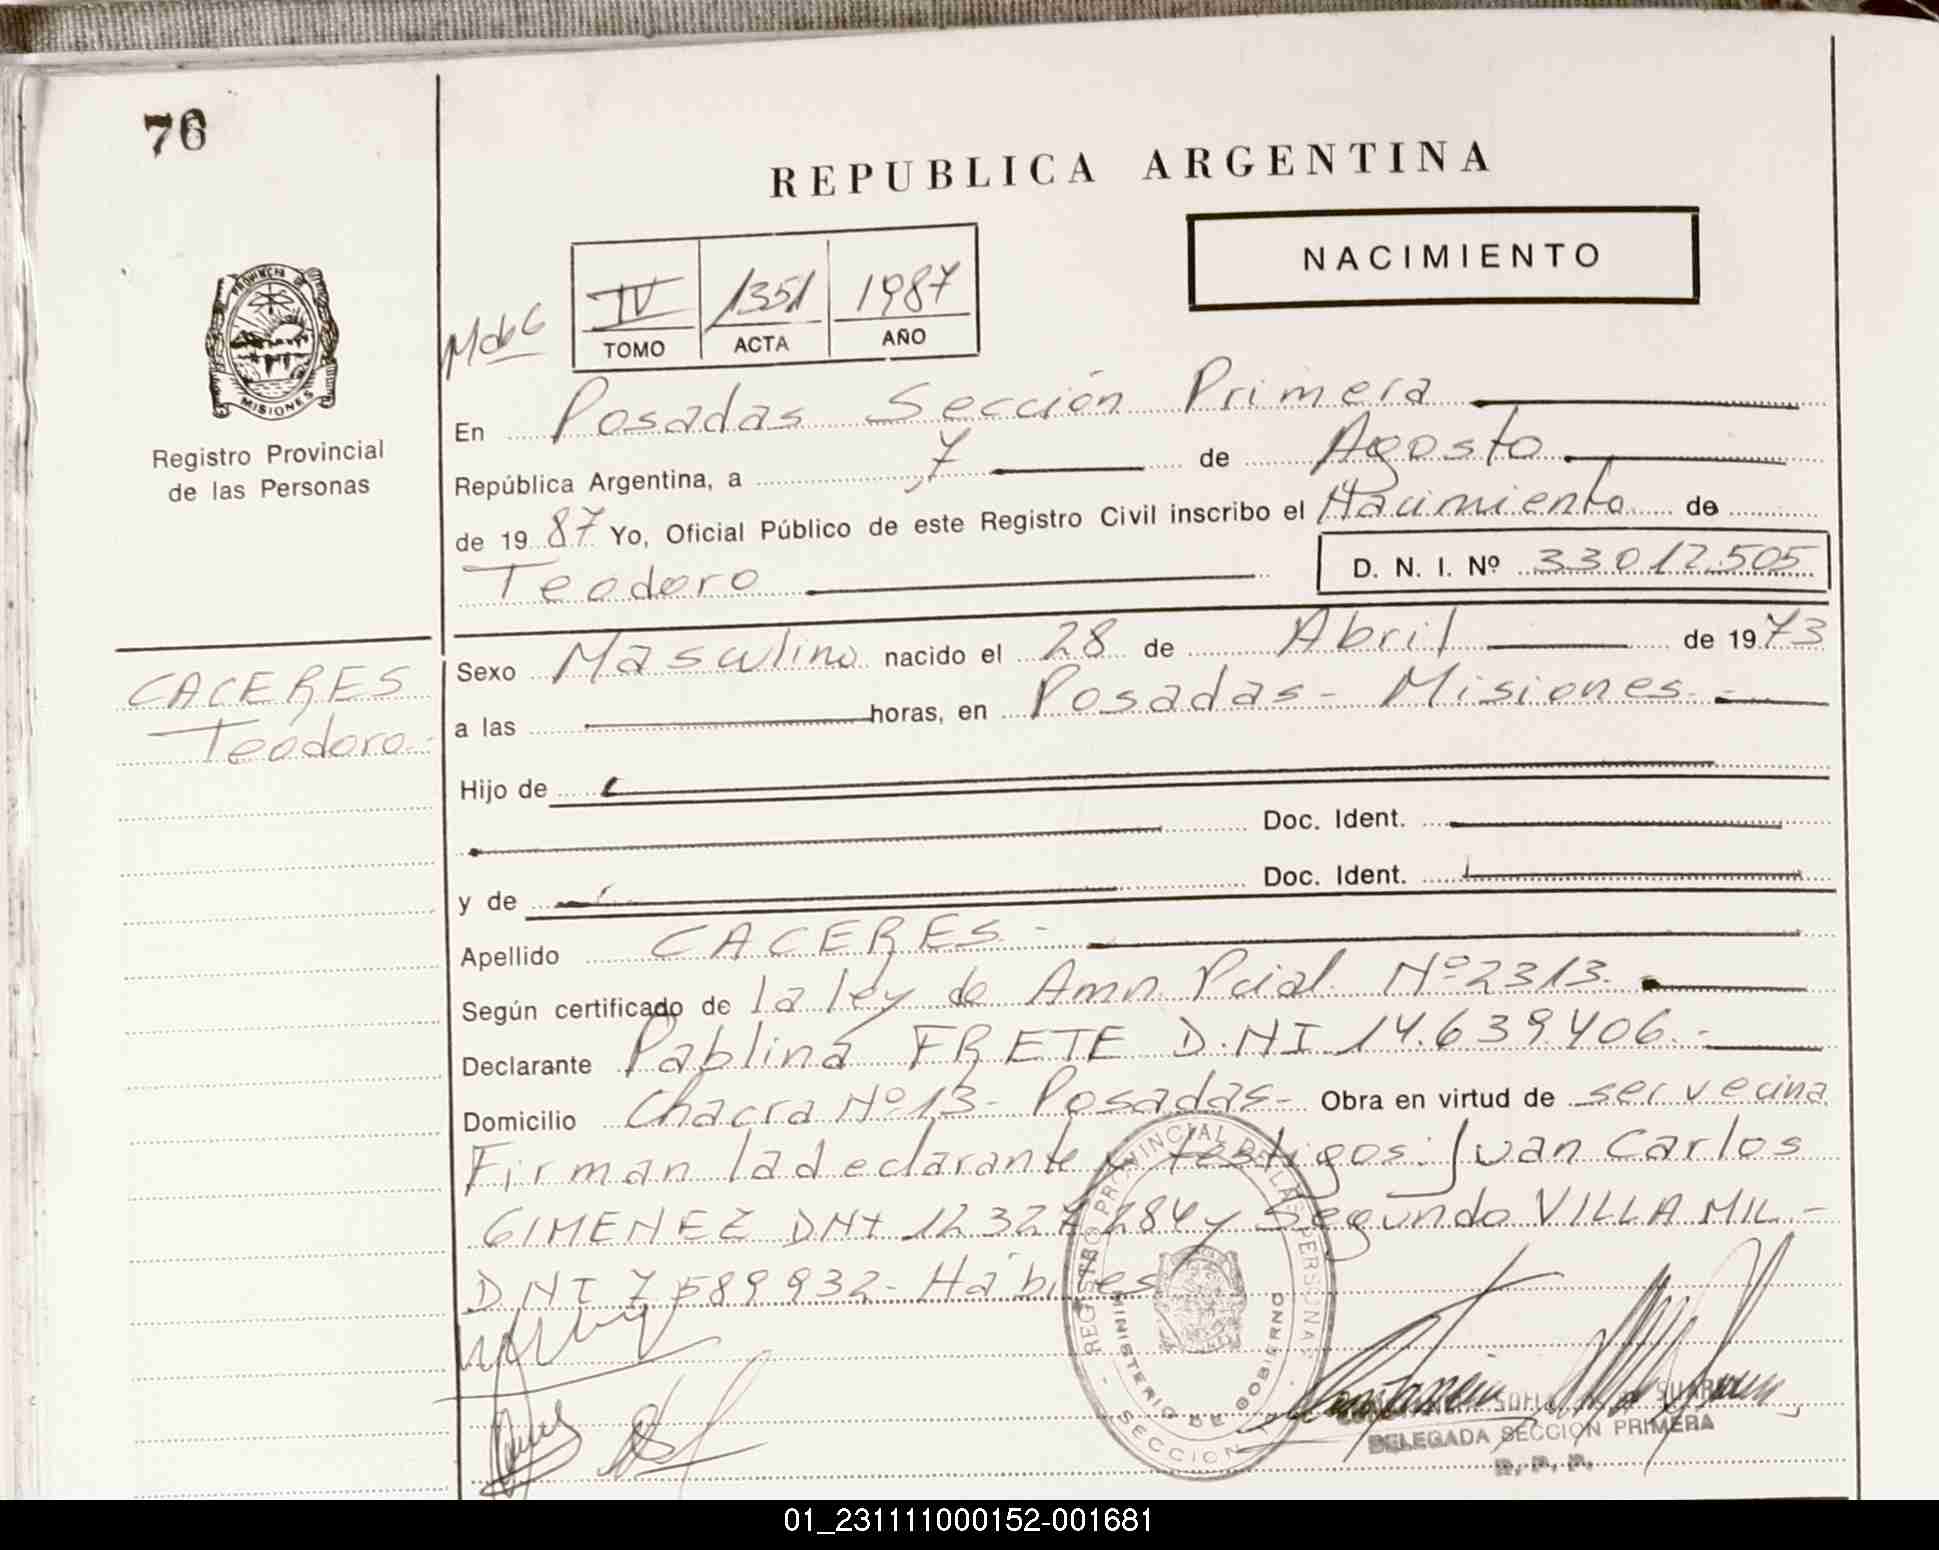 76
REPUBLICA ARGENTINA
NACIMIENTO
IV 1351 1987
TOMO ACTA AÑO
PROVINCIA D
MISIONES
Registro Provincial
de las Personas
En Posadas Sección Primera
República Argentina, a 7 de Agosto
de 19 87 Yo, Oficial Público de este Registro Civil inscribo el Nacimiento de
Teodoro D. N. I. Nº 33012.505
CACERES
Teodoro.-
Sexo Masculino nacido el 28 de Abril de 19 73
a las horas, en Posadas - Misiones.-
Hijo de
Doc. Ident.
y de Doc. Ident.
Apellido CACERES -
Según certificado de la ley de Amn. Pcial. Nº 2313.
Declarante Pablina FRETE D.NI 14.639.406.-
Domicilio Chacra Nº 13 - Posadas - Obra en virtud de ser vecina
Firman la declarante y testigos: Juan Carlos
GIMENEZ DNI 12 327 284 y Segundo VILLAMIL -
DNI 7 589 932 - Hábiles
REGISTRO PROVINCIAL DE LAS PERSONAS
MINISTERIO DE GOBIERNO
SECCION 1
DELEGADA SECCION PRIMERA
R. P. P.
01_231111000152-001681